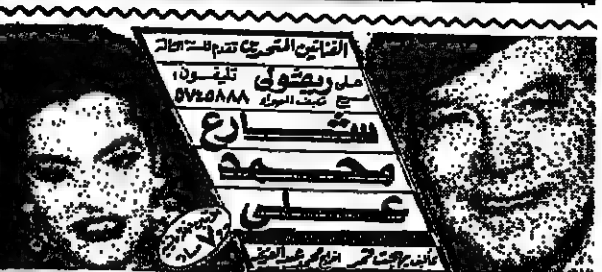 الفنانين المتحدين تقدم للسنة الثالثة
على مسرح ريفولى تليفون:
صيف الهواء ٥٧٤٥٨٨٨
شارع
محمد
على
تأليف بهجت قمر اخراج محمد عبد العزيز